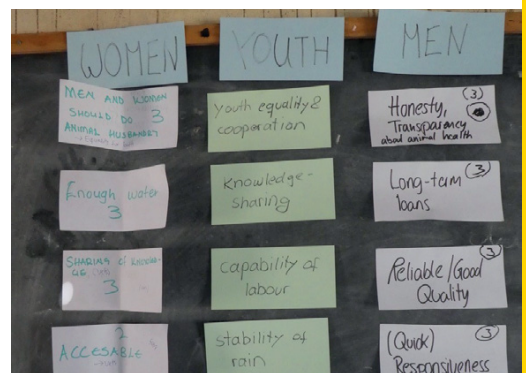 WOMEN
YOUTH
MEN
MEN AND WOMEN
SHOULD DO 3
ANIMAL HUSBANDRY
Enough water
3
SHARING OF KNOWLE-
GE
3
2
ACCESABLE
Youth equality &
cooperation
Knowledge-
sharing
capability of
labour
stability of
rain
(3)
Honesty,
Transparency
about animal health
(3)
Long-term
loans
(3)
Reliable/Good
Quality
(3)
(Quick)
Responsiveness